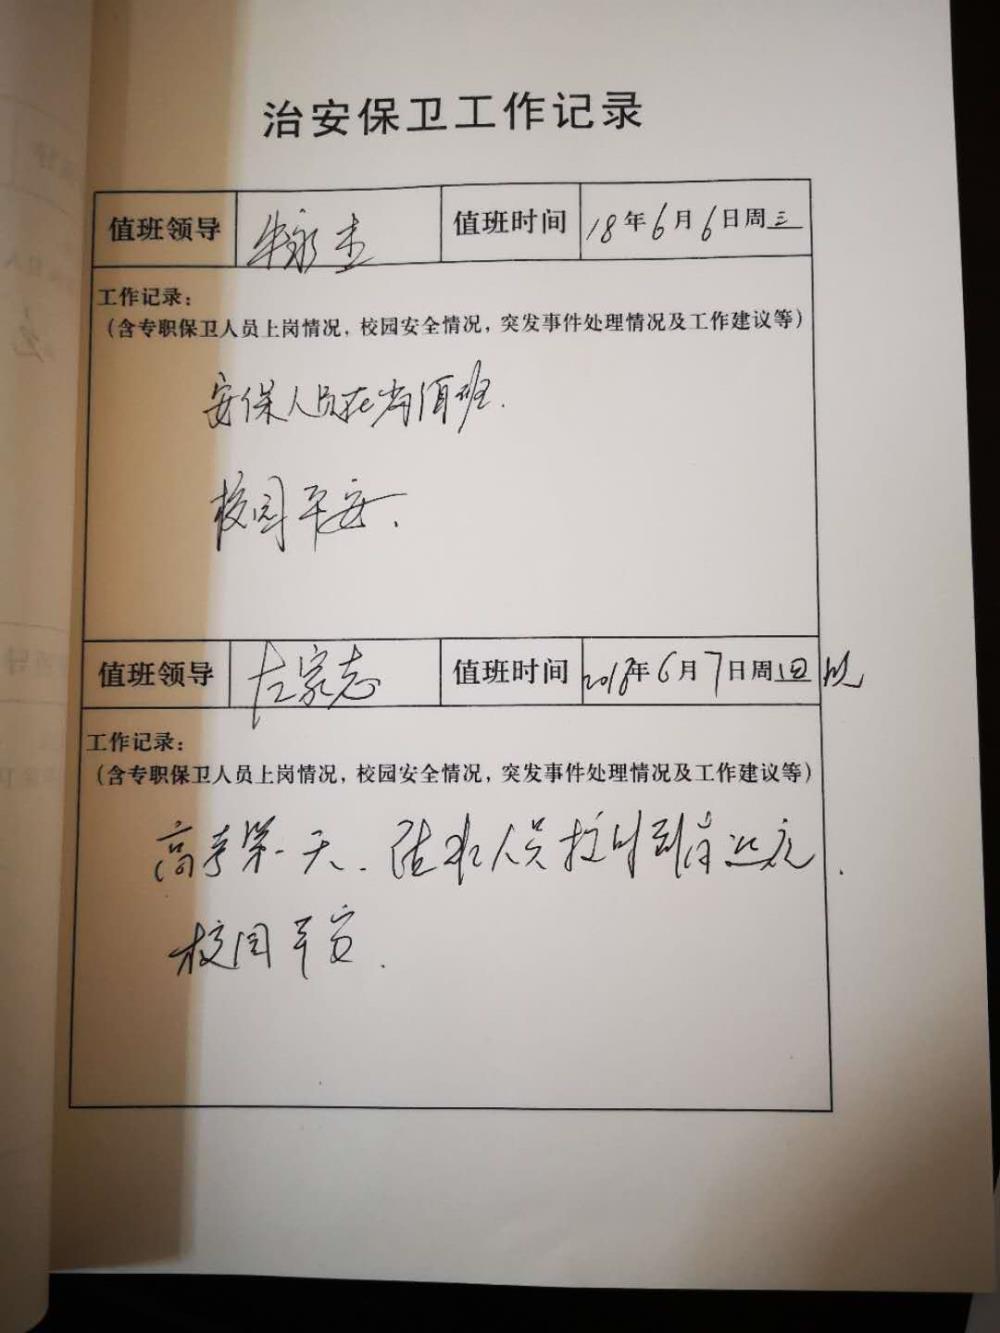 治安保卫工作记录
值班领导 牛永杰 值班时间 18年6月6日周三
工作记录：
（含专职保卫人员上岗情况，校园安全情况，突发事件处理情况及工作建议等）
安保人员在岗值班.
校园平安.
值班领导 左家志 值班时间 2018年6月7日周四
工作记录：
（含专职保卫人员上岗情况，校园安全情况，突发事件处理情况及工作建议等）
高考第一天.人员按时到岗
校园平安.